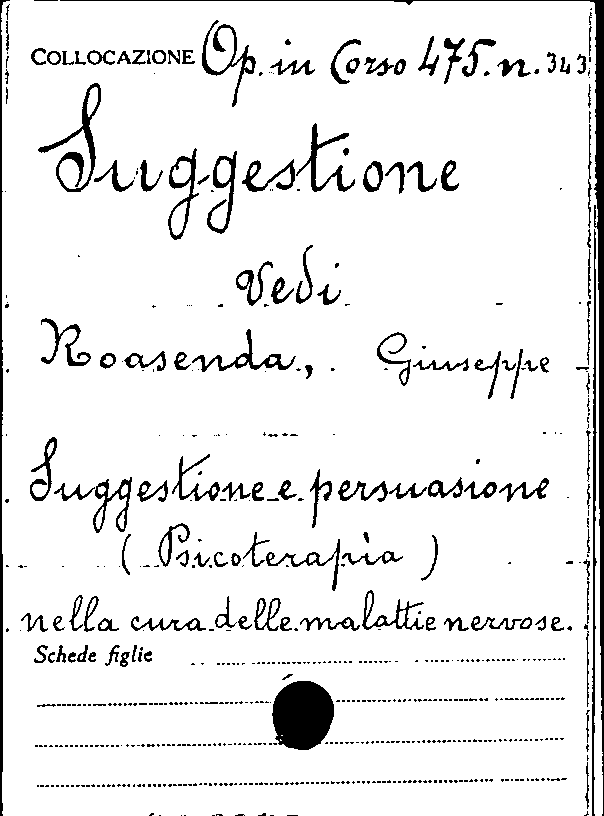 COLLOCAZIONE Op. in Corso 475. n. 343
Suggestione
Vedi
Roasenda, Giuseppe
Suggestione e persuasione
( Psicoterapìa )
nella cura delle malattie nervose.
Schede figlie